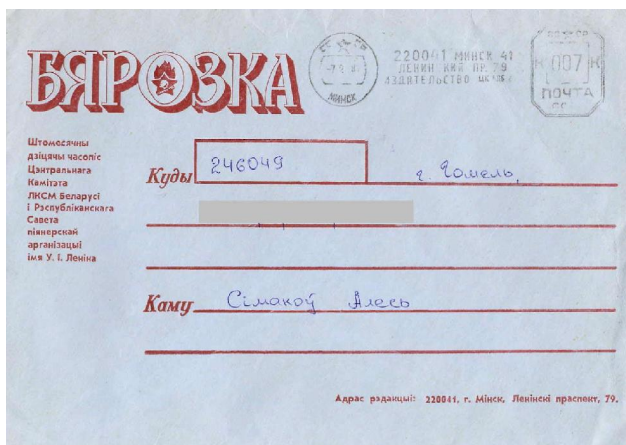 БЯРОЗКА
220041 МИНСК 41
ЛЕНИНСКИЙ ПР. 79
ИЗДАТЕЛЬСТВО ЦК КПБ
МИНСК
К 007 К
ПОЧТА
Штомесячны
дзіцячы часопіс
Цэнтральнага
Камітэта
ЛКСМ Беларусі
і Рэспубліканскага
Савета
піянерскай
арганізацыі
імя У. І. Леніна
Куды 246049 г. Гомель,
Каму Сімакоў Алесь
Адрас рэдакцыі: 220041, г. Мінск, Ленінскі праспект, 79.